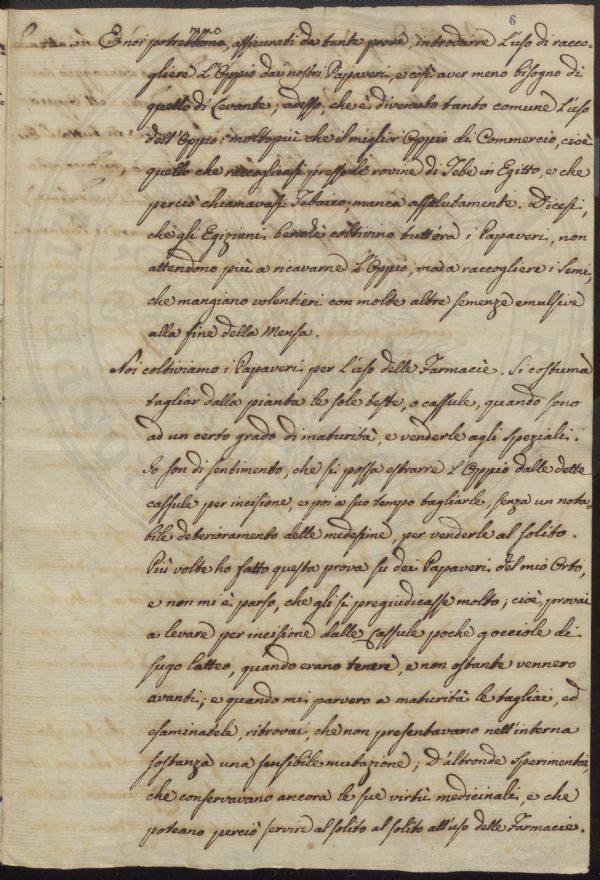 6
E noi potremmo, assicurati da tante prove, introdurre l'uso di racco-
gliere l'Oppio dai nostri Papaveri, e così aver meno bisogno di
quello di Levante; adesso, che è divenuto tanto comune l'uso
dell'Oppio: molto più che il miglior Oppio di Commercio, cioè
quello che raccoglieasi presso le rovine di Tebe in Egitto, e che
perciò chiamavasi Tebaico, manca assolutamente. Dicesi,
che gli Egiziani benchè coltivino tuttora i Papaveri, non
attendono più a ricavarne l'Oppio, ma a raccogliere i semi,
che mangiano volentieri con molte altre semenze emulsive
alla fine della Mensa.
Noi coltiviamo i Papaveri per l'uso delle Farmacie. Si costuma
tagliar dalla pianta le sole teste, o cassule, quando sono
ad un certo grado di maturità, e venderle agli speziali.
Io son di sentimento, che si possa estrarre l'Oppio dalle dette
cassule per incisione, e poi a suo tempo tagliarle, senza un nota-
bile deterioramento delle medesime, per venderle al solito.
Più volte ho fatto questa prova su dei Papaveri del mio Orto,
e non mi è parso, che gli si pregiudicasse molto; cioè, provai
a levare per incisione dalle Cassule poche gocciole di
sugo latteo, quando erano tenere, e non ostante vennero
avanti; e quando mi parvero a maturità le tagliai, ed
esaminatele, ritrovai, che non presentavano nell'interna
sostanza una sensibile mutazione; D'altronde sperimentai,
che conservavano ancora le sue virtù medicinali, e che
poteano perciò servire al solito al solito all'uso delle Farmacie.